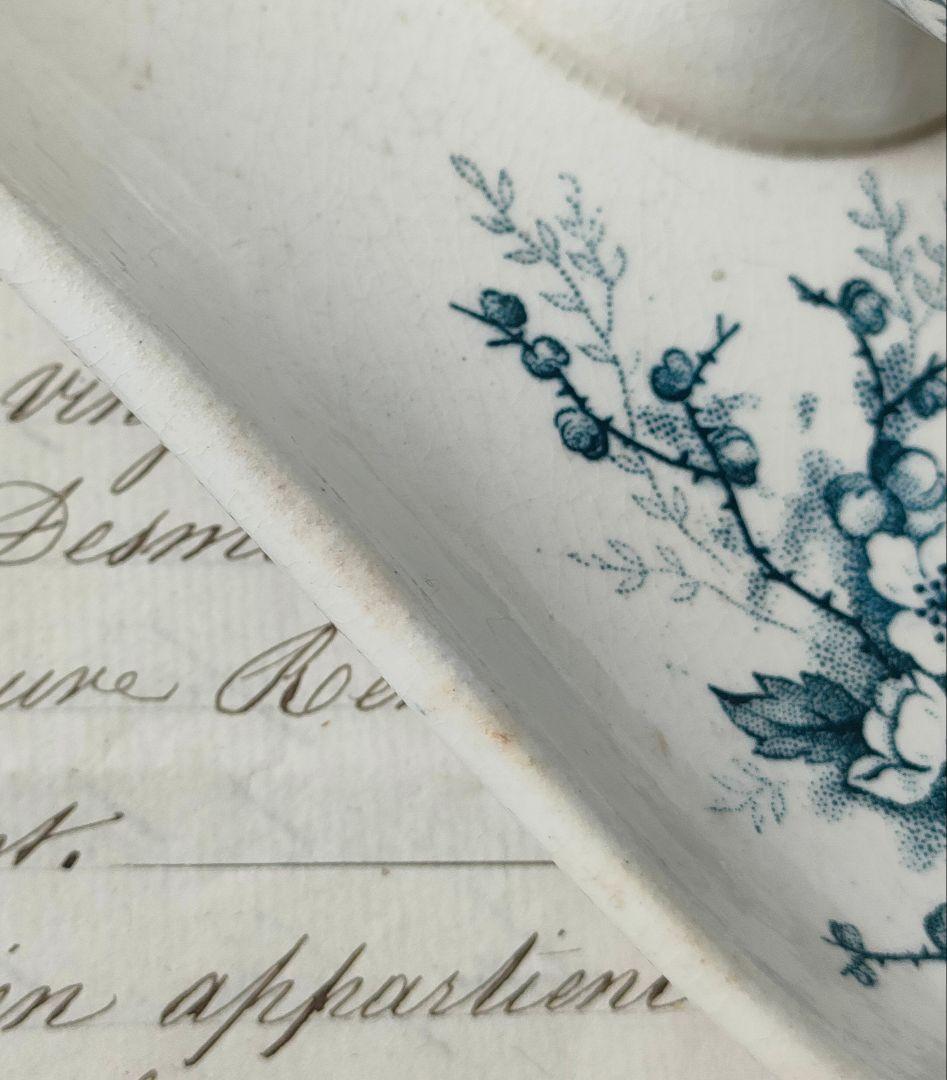 vin
Desm
ure Re
t.
in appartient